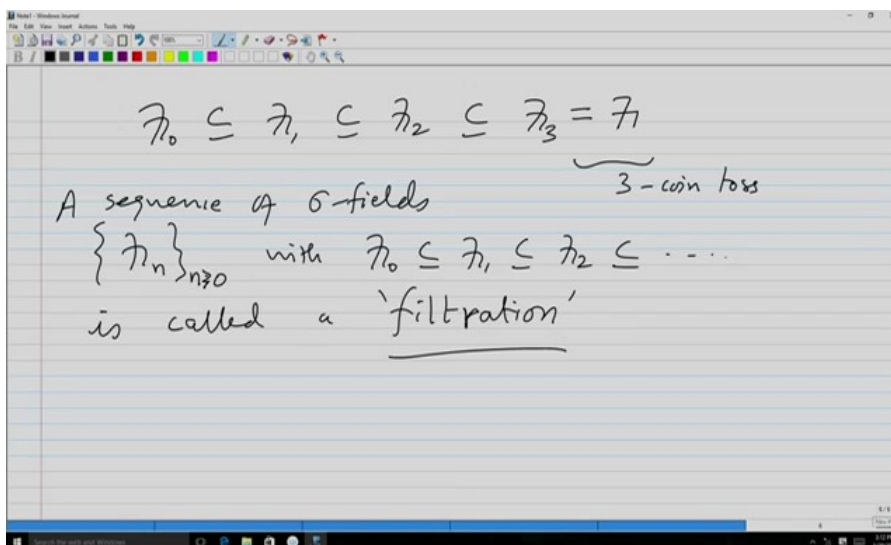 Note1 - Windows Journal
File Edit View Insert Actions Tools Help
ℱ₀ ⊆ ℱ₁ ⊆ ℱ₂ ⊆ ℱ₃ = ℱ
3-coin toss
A sequence of σ-fields
{ℱₙ}ₙ≥₀ with ℱ₀ ⊆ ℱ₁ ⊆ ℱ₂ ⊆ ....
is called a 'filtration'
Search the web and Windows